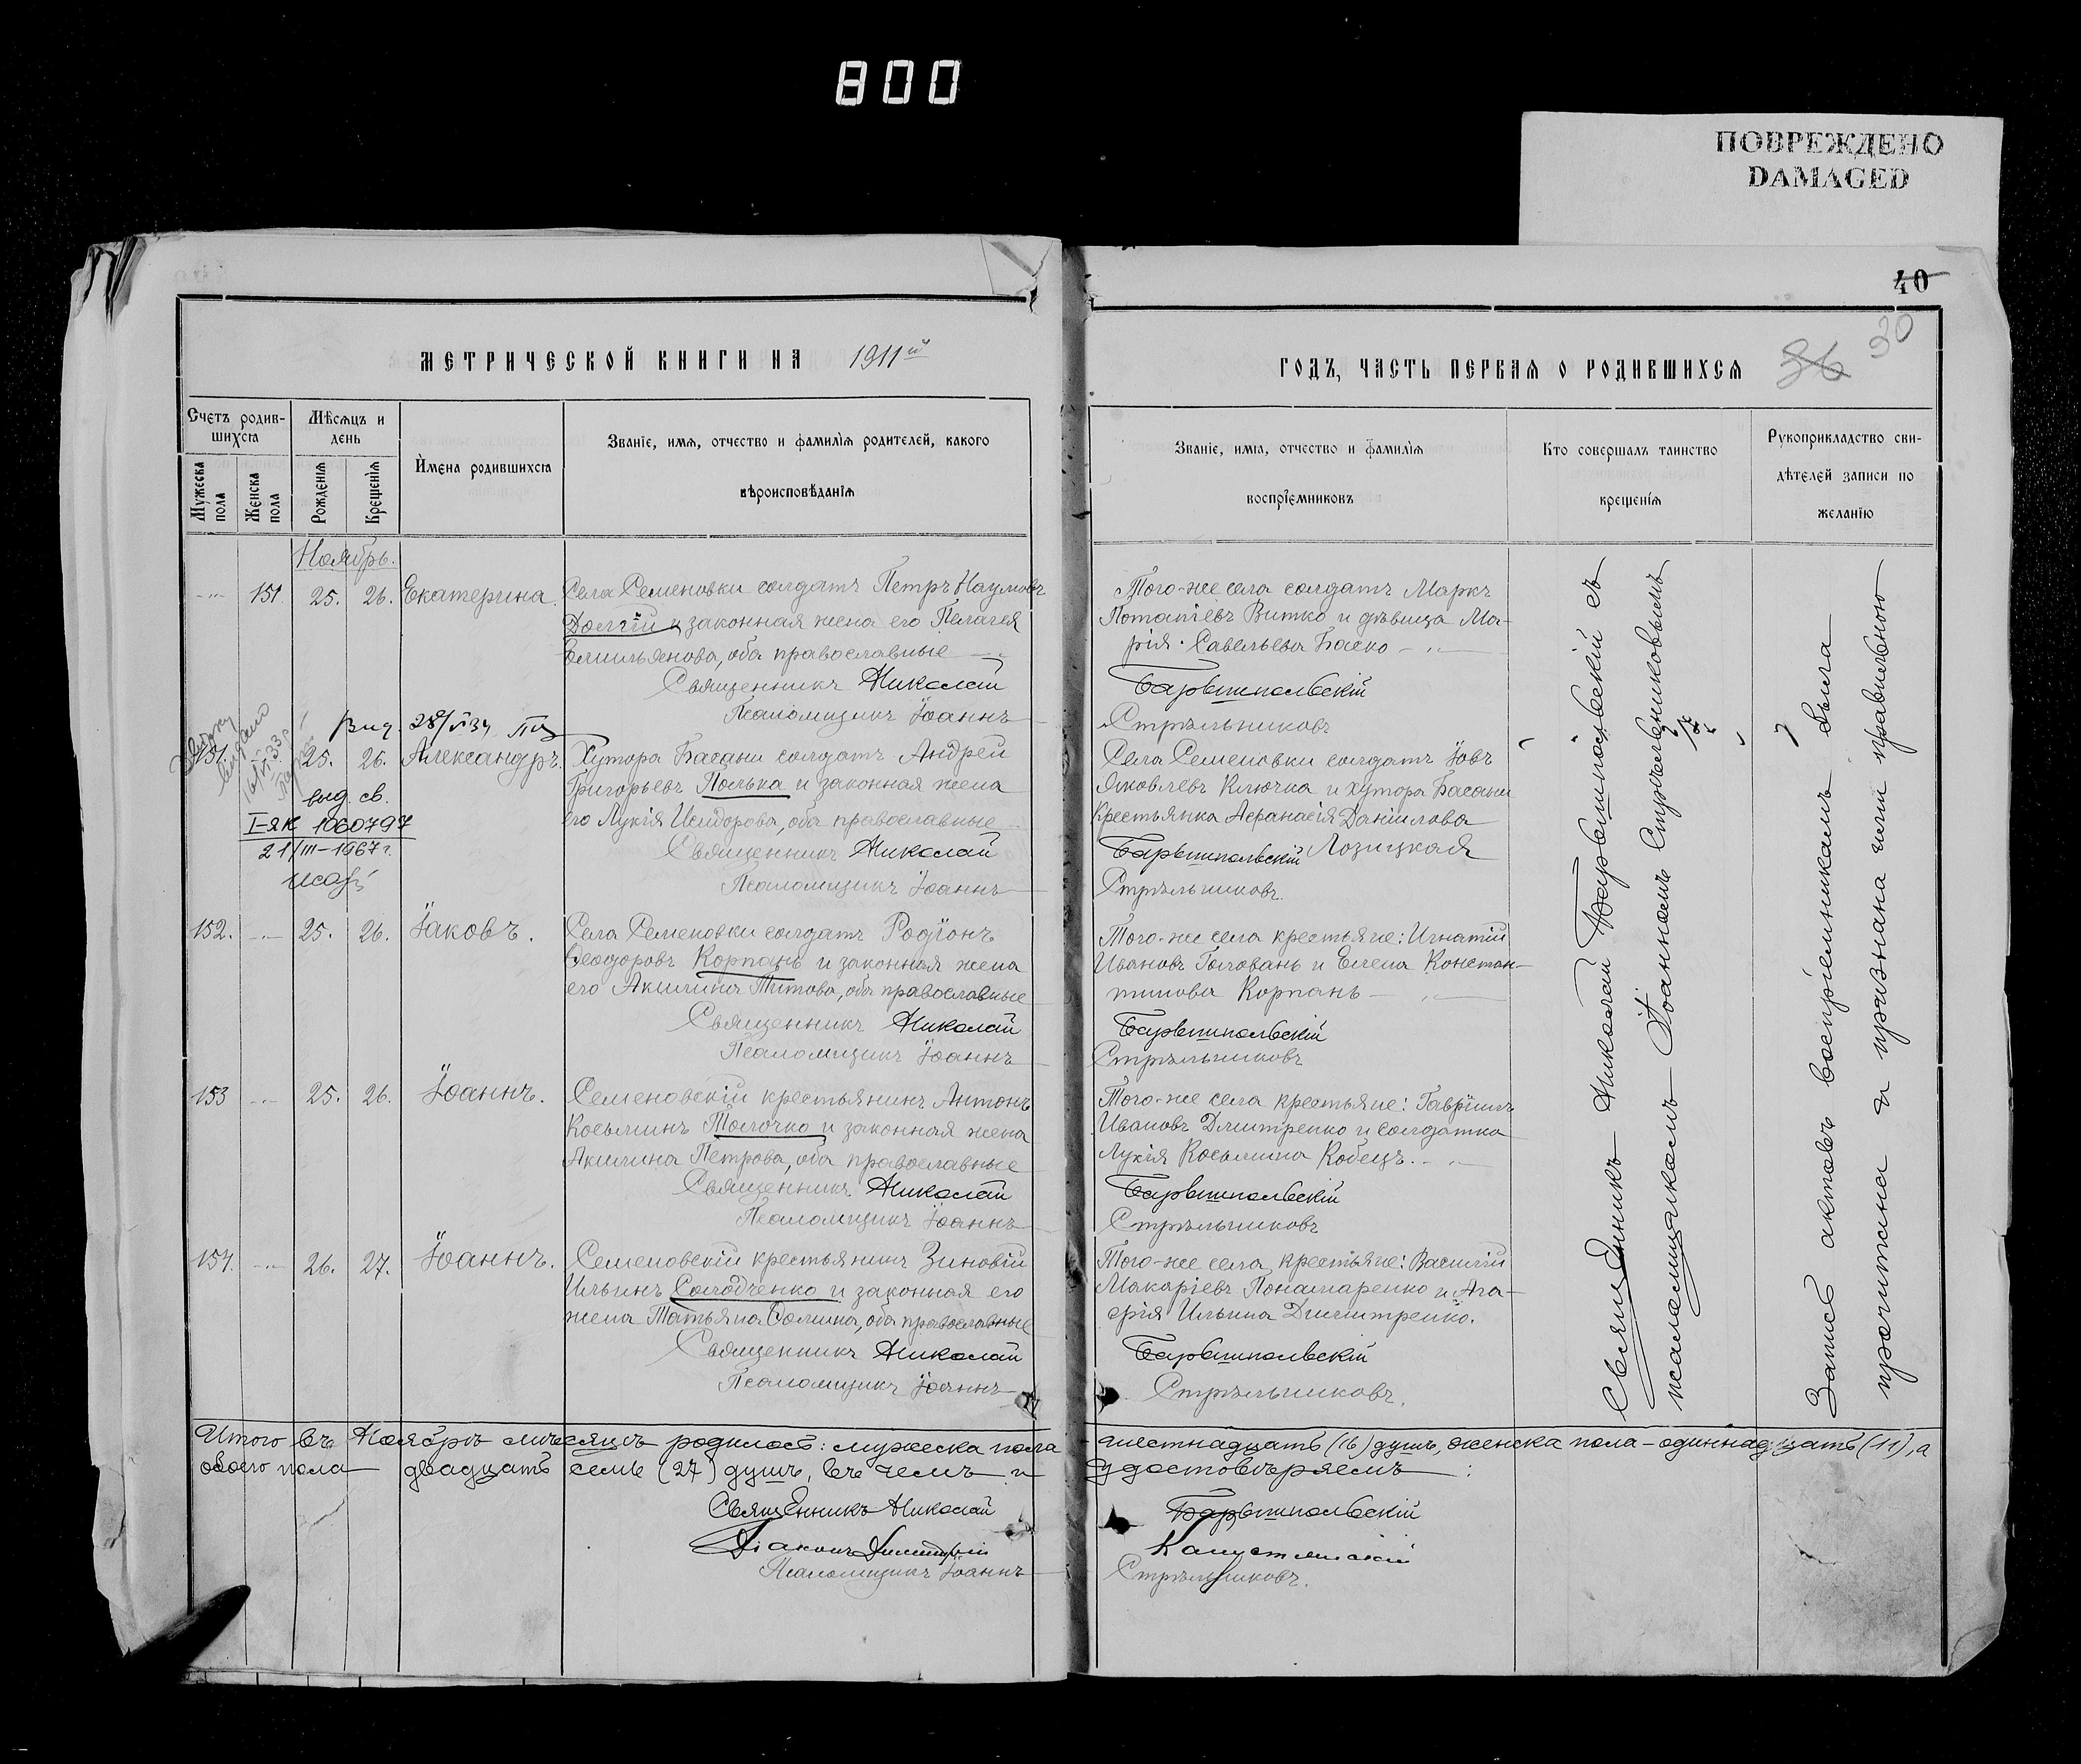 800
ПОВРЕЖДЕНО
DAMAGED
40
МЕТРИЧЕСКОЙ КНИГИ НА 1911й
Счетъ родив-
шихся
Мѣсяцъ и
день
Мужеска
пола
Женска
пола
Рожденія
Крещенія
Имена родившихся
Званіе, имя, отчество и фамилія родителей, какого
вѣроисповѣданія
Ноябрь.
151 25. 26. Екатерина. Села Семеновки солдатъ Петръ Наумовъ
Долгій и законная жена его Пелагея
Емильянова, оба православные
Священникъ Николай
Псаломщикъ Іоаннъ
151. 25. 26. Александръ. Хутора Басани солдатъ Андрей
Григорьевъ Полька и законная жена
его Лукія Исидорова, оба православные
Священникъ Николай
Псаломщикъ Іоаннъ
выд. св.
I-ЯК 1060797
21/III-1967 г.
152. 25. 26. Іаковъ. Села Семеновки солдатъ Родіонъ
Ѳеодоровъ Корпань и законная жена
его Акилина Титова, оба православные
Священникъ Николай
Псаломщикъ Іоаннъ
153 25. 26. Іоаннъ. Семеновскій крестьянинъ Антонъ
Косьминъ Толочко и законная жена
Акилина Петрова, оба православные
Священникъ Николай
Псаломщикъ Іоаннъ
154. 26. 27. Іоаннъ. Семеновскій крестьянинъ Зиновій
Ильинъ Солодченко и законная его
жена Татьяна Ѳомина, оба православные
Священникъ Николай
Псаломщикъ Іоаннъ
ГОДЪ, ЧАСТЬ ПЕРВАЯ О РОДИВШИХСЯ 36 30
Званіе, имя, отчество и фамилія
воспріемниковъ
Кто совершалъ таинство
крещенія
Рукоприкладство сви-
дѣтелей записи по
желанію
Того-же села солдатъ Маркъ
Потапіевъ Витко и дѣвица Ма-
рія Савельева Баско
Барвишпольскій
Стрѣльниковъ
Села Семеновки солдатъ Іовъ
Яковлевъ Ключка и хутора Басани
крестьянка Аѳанасія Даніилова
Лозицкая
Барвишпольскій
Стрѣльниковъ.
Того-же села крестьяне: Игнатій
Ивановъ Головань и Елена Констан-
тинова Корпань
Барвишпольскій
Стрѣльниковъ
Того-же села крестьяне: Гавріилъ
Ивановъ Дмитренко и солдатка
Лукія Косьмина Кобецъ.
Барвишпольскій
Стрѣльниковъ
Того-же села крестьяне: Василій
Макаріевъ Понамаренко и Ага-
фія Ильина Дмитренко.
Барвишпольскій
Стрѣльниковъ.
Священникъ Николай Барвишпольскій съ
псаломщикомъ Іоанномъ Стрѣльниковымъ
Запись актовъ воспріемникамъ была
прочитана и признана ими правильною
Итого въ Ноябрѣ мѣсяцѣ родилось: мужеска пола - шестнадцать (16) душъ, женска пола - одиннадцать (11), а
обоего пола двадцать семь (27) душъ, въ чемъ и удостовѣряемъ:
Священникъ Николай Барвишпольскій
Діаконъ Димитрій Капустянскій
Псаломщикъ Іоаннъ Стрѣльниковъ.